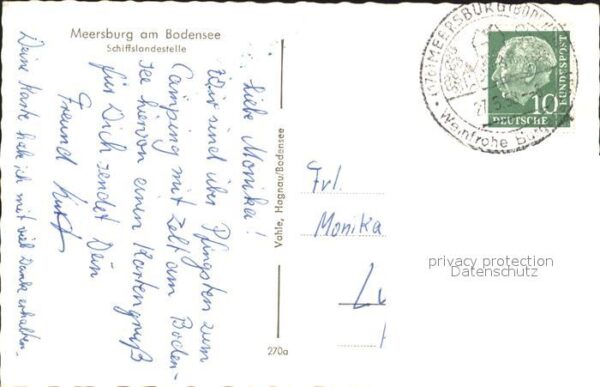 Meersburg am Bodensee
Schiffslandestelle
Liebe Monika!
Wir sind über Pfingsten zum
Camping mit Zelt am Boden-
see hiervon einen Kartengruß
für Dich sendet Dein
Freund Kurt
Deine Karte habe ich mit viel Danke erhalten.
Vahle, Hagnau/Bodensee
270a
MEERSBURG (BODENSEE)
27.5.
Weinfrohe
10
DEUTSCHE
BUNDESPOST
Frl.
Monika
privacy protection
Datenschutz